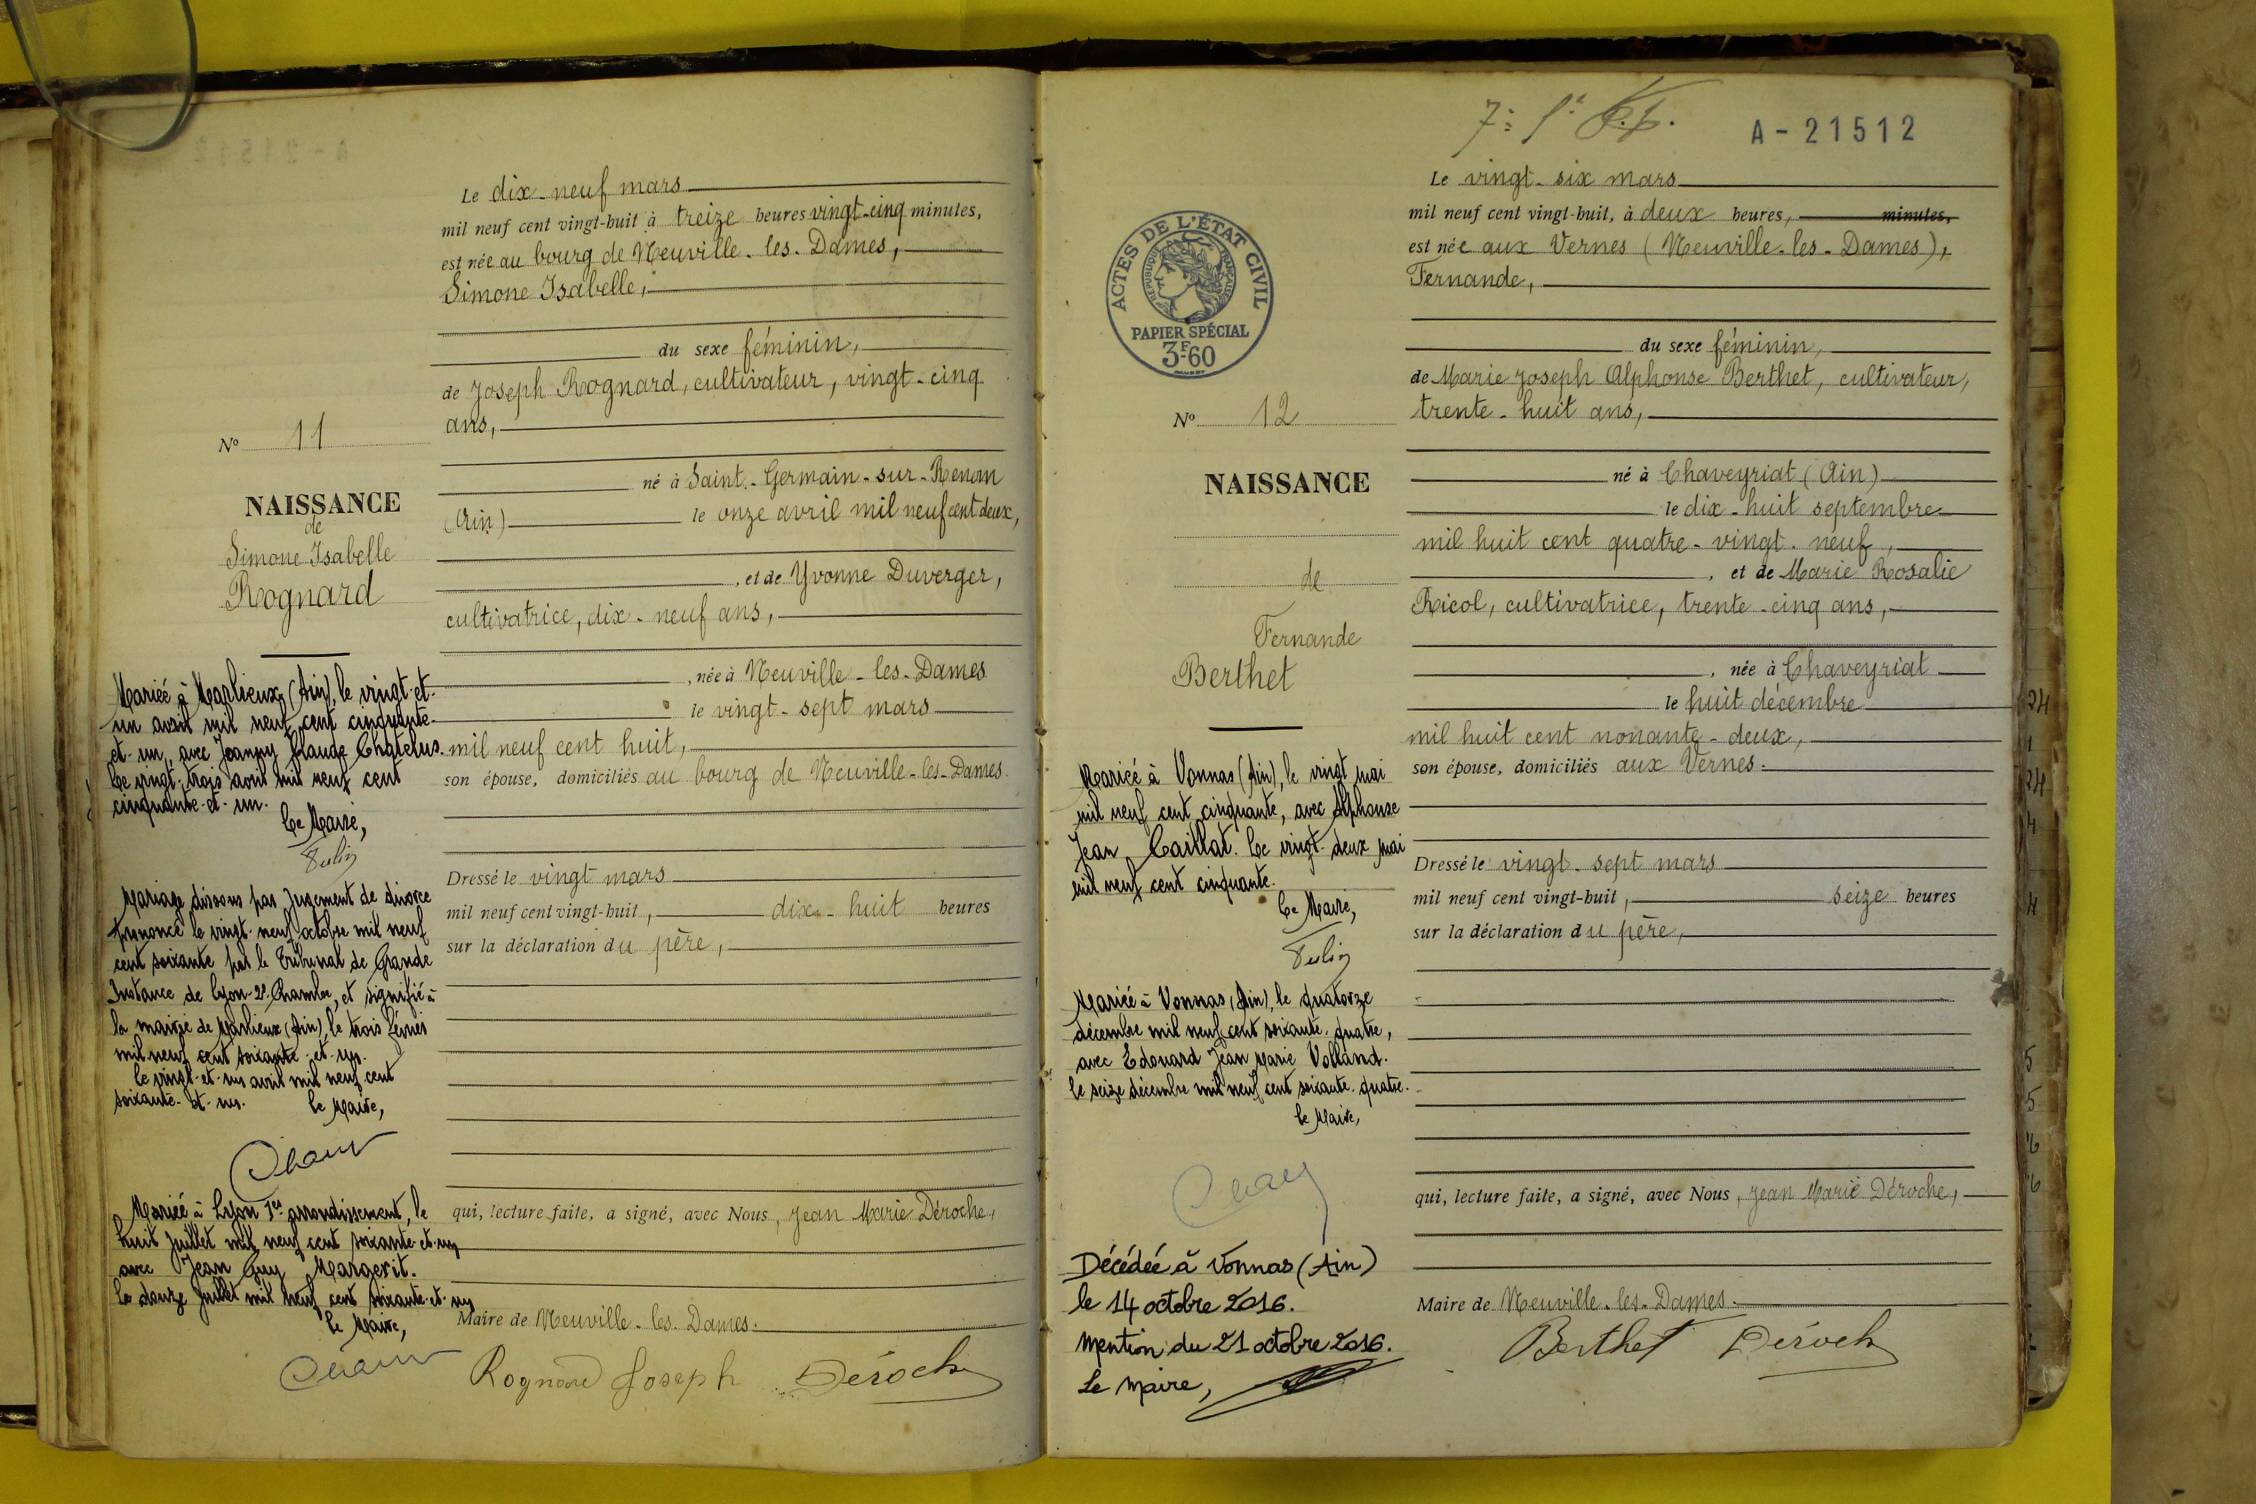 Le dix-neuf mars
mil neuf cent vingt-huit à treize heures vingt-cinq minutes,
est née au bourg de Neuville-les-Dames,
Simone Isabelle,
du sexe féminin,
de Joseph Rognard, cultivateur, vingt-cinq
ans,
né à Saint-Germain-sur-Renom
(Ain) le onze avril mil neuf cent deux,
, et de Yvonne Duverger,
cultivatrice, dix-neuf ans,
, née à Neuville-les-Dames
le vingt-sept mars
mil neuf cent huit,
son épouse, domiciliés au bourg de Neuville-les-Dames.
Dressé le vingt mars
mil neuf cent vingt-huit, dix-huit heures
sur la déclaration du père,
qui, lecture faite, a signé, avec Nous, Jean Marie Déroche,
Maire de Neuville-les-Dames.
Rognard Joseph Déroche
No 11
NAISSANCE
de
Simone Isabelle
Rognard
Mariée à Marlieux (Ain), le vingt-et-
un avril mil neuf cent cinquante-
et-un, avec Jeanny Claude Chatelus.
Le vingt-trois avril mil neuf cent
cinquante-et-un.
Le Maire,
Mariage dissous par jugement de divorce
prononcé le vingt-neuf octobre mil neuf
cent soixante par le Tribunal de Grande
Instance de Lyon-2e Chambre, et signifié à
la mairie de Marlieux (Ain), le trois février
mil neuf cent soixante-et-un.
Le vingt-et-un avril mil neuf cent
soixante-et-un. Le Maire,
Mariée à Lyon 1er arrondissement, le
huit juillet mil neuf cent soixante-et-un
avec Jean Guy Margerit.
Le douze juillet mil neuf cent soixante-et-un
Le Maire,
A-21512
Le vingt-six mars
mil neuf cent vingt-huit, à deux heures, minutes,
est née aux Vernes (Neuville-les-Dames),
Fernande,
du sexe féminin,
de Marie Joseph Alphonse Berthet, cultivateur,
trente-huit ans,
né à Chaveyriat (Ain)
le dix-huit septembre
mil huit cent quatre-vingt-neuf,
, et de Marie Rosalie
Ricol, cultivatrice, trente-cinq ans,
, née à Chaveyriat
le huit décembre
mil huit cent nonante-deux,
son épouse, domiciliés aux Vernes.
Dressé le vingt-sept mars
mil neuf cent vingt-huit, seize heures
sur la déclaration du père,
qui, lecture faite, a signé, avec Nous, Jean Marie Déroche,
Maire de Neuville-les-Dames.
Berthet Déroche
ACTES DE L'ÉTAT CIVIL
RÉPUBLIQUE FRANÇAISE
PAPIER SPÉCIAL
3F60
No 12
NAISSANCE
de
Fernande
Berthet
Mariée à Vonnas (Ain), le vingt mai
mil neuf cent cinquante, avec Alphonse
Jean Caillat. Le vingt-deux mai
mil neuf cent cinquante.
Le Maire,
Mariée à Vonnas (Ain), le quatorze
décembre mil neuf cent soixante-quatre,
avec Edouard Jean Marie Volland.
le seize décembre mil neuf cent soixante-quatre.
Le Maire,
Décédée à Vonnas (Ain)
le 14 octobre 2016.
Mention du 21 octobre 2016.
Le Maire,